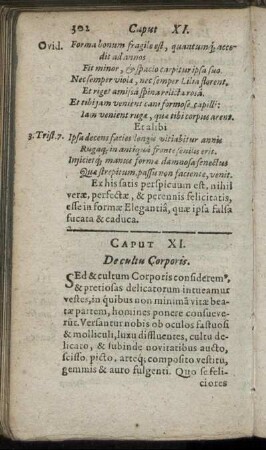 302 Caput XI.
Ovid. Forma bonum fragile est, quantumq; acce-
dit ad annos
Fit minor, & spacio carpitur ipsa suo.
Nec semper violæ, nec semper Lilia florent.
Et riget amissa spina relicta rosa.
Et tibi jam venient cani formose capilli:
Iam venient rugæ, quæ tibi corpus arent.
Et alibi
3. Trist. 7. Ista decens facies longis vitiabitur annis
Rugaq; in antiqua fronte senilis erit.
Injicietq; manum formæ damnosa senectus
Quæ strepitum passu non faciente, venit.
Ex his satis perspicuum est, nihil
veræ, perfectæ, & perennis felicitatis,
esse in formæ Elegantiâ, quæ ipsa falsa
fucata & caduca.
CAPUT XI.
De cultu Corporis.
SEd & cultum Corporis consideremꝰ,
& pretiosas delicatorum intueamur
vestes, in quibus non minimâ vitæ bea-
tæ partem, homines ponere consueve-
rût. Versantur nobis ob oculos fastuosi
& molliculi, luxu diffluentes, cultu de-
licato, & subinde novitatibus aucto,
scisso, picto, arteq; composito vestitu,
gemmis & auro fulgenti. Quo se feli-
ciores